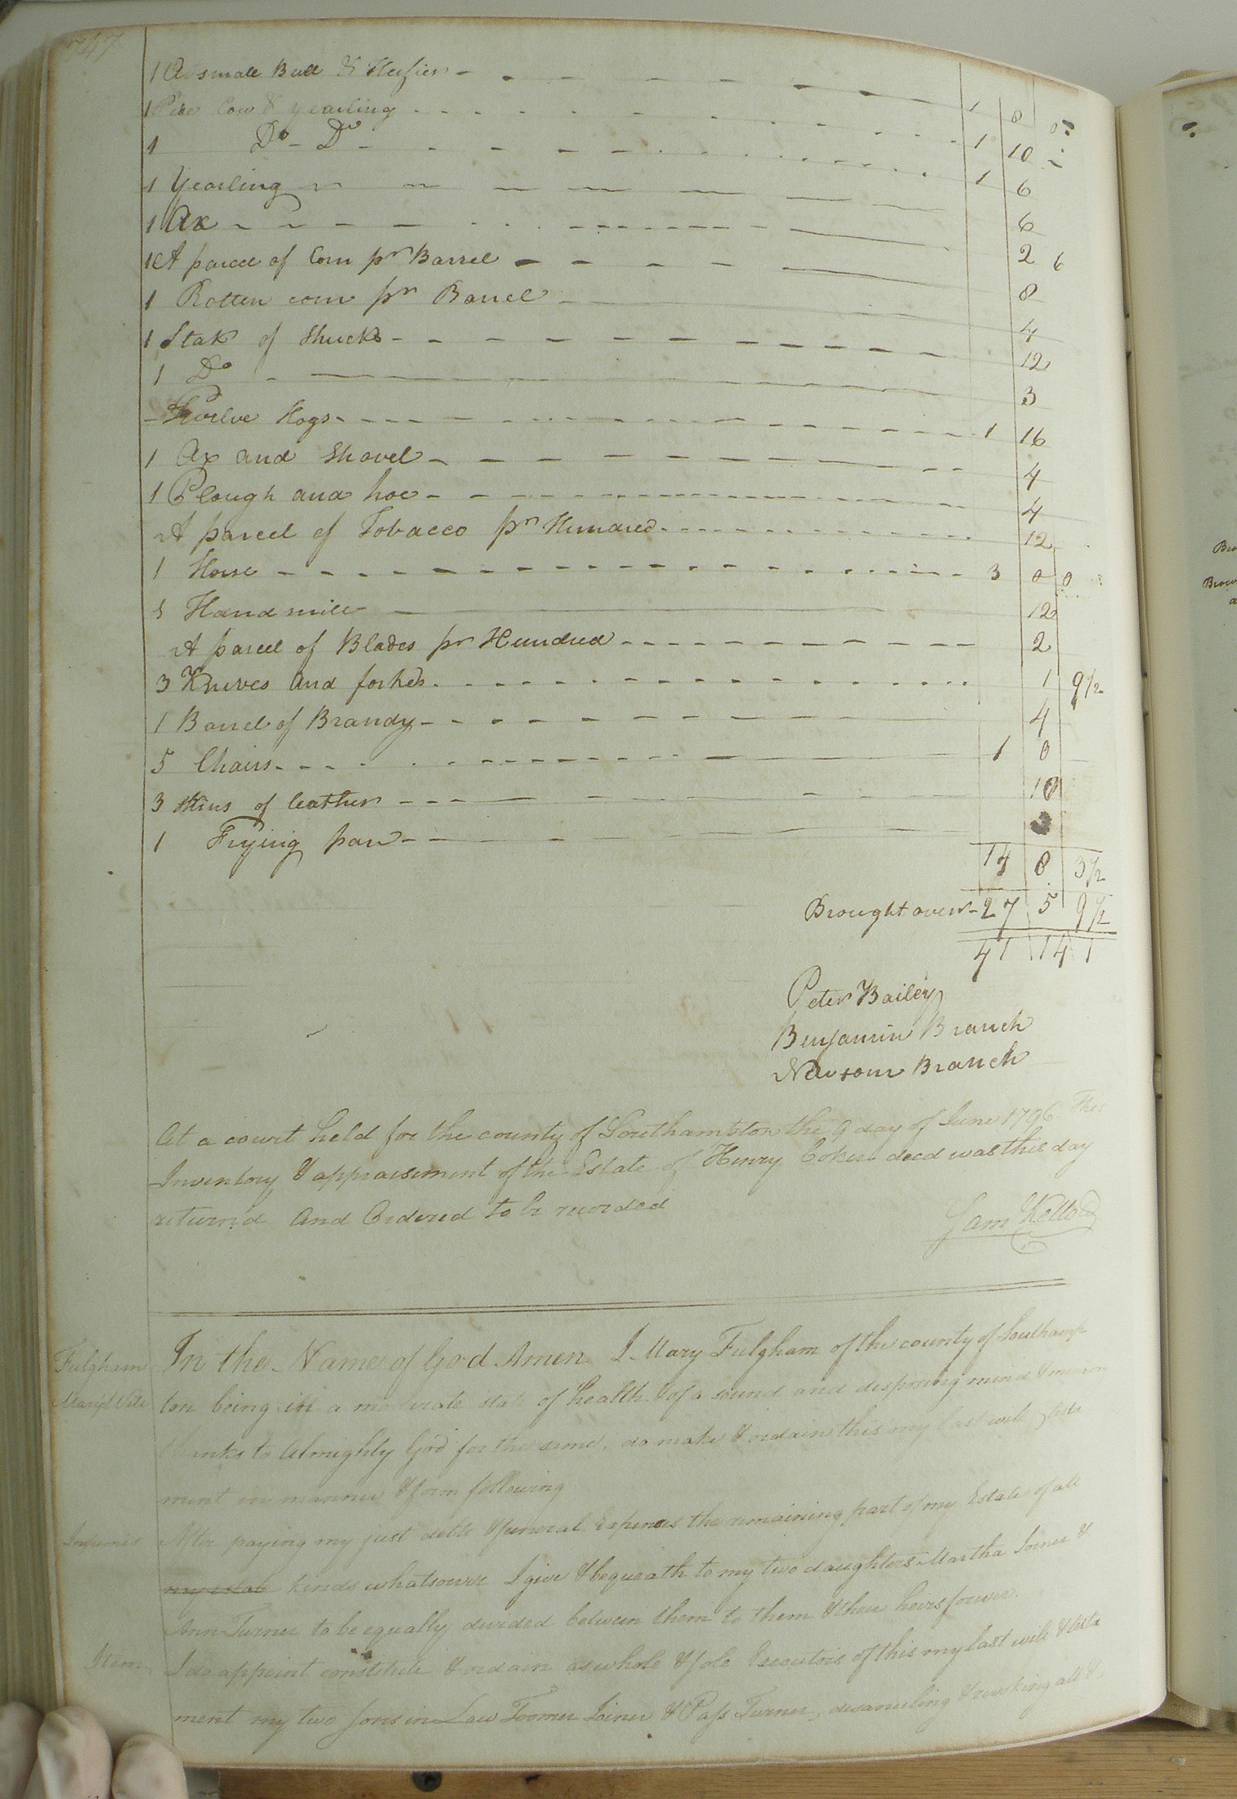 747
1 A small Bull & Heifer 1 8 0
1 Pide Cow & yearling 1 10
1 Do Do 1 6
1 Yearling 6
1 Ax 2 6
A parcel of Corn pr Barrel 8
1 Rotten corn pr Barrel 4
1 Stak of Shucks 12
1 Do 3
Twelve Hogs 1 16
1 Ax and Shovel 4
1 Plough and hoe 4
A parcel of Tobacco pr Hundred 12
1 Horse 3 0 0
1 Hand mill 12
A parcel of Blades pr Hundred 2
3 Knives and forkes 1 9 1/2
1 Barrel of Brandy 4
5 Chairs 1 0
3 skins of leather 10
1 Frying pan 3
14 8 3 1/2
Brought over 27 5 9 1/2
41 14 1
Peter Bailey
Benjamin Branch
Newsom Branch
At a court held for the county of Southampton the 9 day of June 1796 This
Inventory & appraisement of the Estate of Henry Coker decd was this day
returnd And Ordered to be recorded
Sam Kello
Fulgham
Mary's Will
In the Name of God Amen I Mary Fulgham of the county of Southamp
ton being in a moderate state of health & of a sound and disposing mind &
thanks to Almighty God for the same, do make & ordain this my last will & testa
ment in manner & form following
Imprimis After paying my just debts & funeral Expences the remaining part of my Estate of all
my estate kinds whatsoever I give & bequeath to my two daughters Martha Joiner &
Ann Turner to be equally divided between them to them & their heirs forever.
Item I do appoint constitute & ordain as whole & sole Executors of this my last will & testa
ment my two sons in Law Toomer Joiner & Pass Turner, disanuling & revoking all